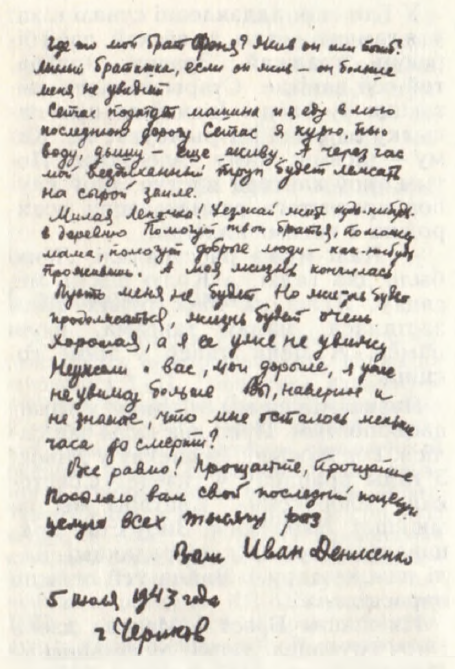 Где то мой брат Фроня? Жив он или погиб.
Милый братка, если он жив – он больше
меня не увидит
Сейчас подойдет машина и я еду в мою
последнюю дорогу. Сейчас я курю, пью
воду, дышу – еще живу, А через час
мой бездыханный труп будет лежать
на сырой земле.
Милая Леночка! Уезжай жить куда-нибудь
в деревню Помогут твои братья, поможет
мать и помогут добрые люди – как-нибудь
проживешь. Моя жизнь кончилась.
Пусть меня не будет. Но жизнь будет
продолжаться, жизнь будет очень
хорошая, а я ее уже не увижу
Неужели и вас, мои дорогие, я уже
не увижу больше Вы, наверно, и
не знаете, что мне осталось жить
час до смерти?
Все равно! Прощайте, прощайте
Посылаю вам свой последний поцелуй
целую всех тысячу раз
Ваш Иван Денисенко
5 июля 1943 года
г Чериков